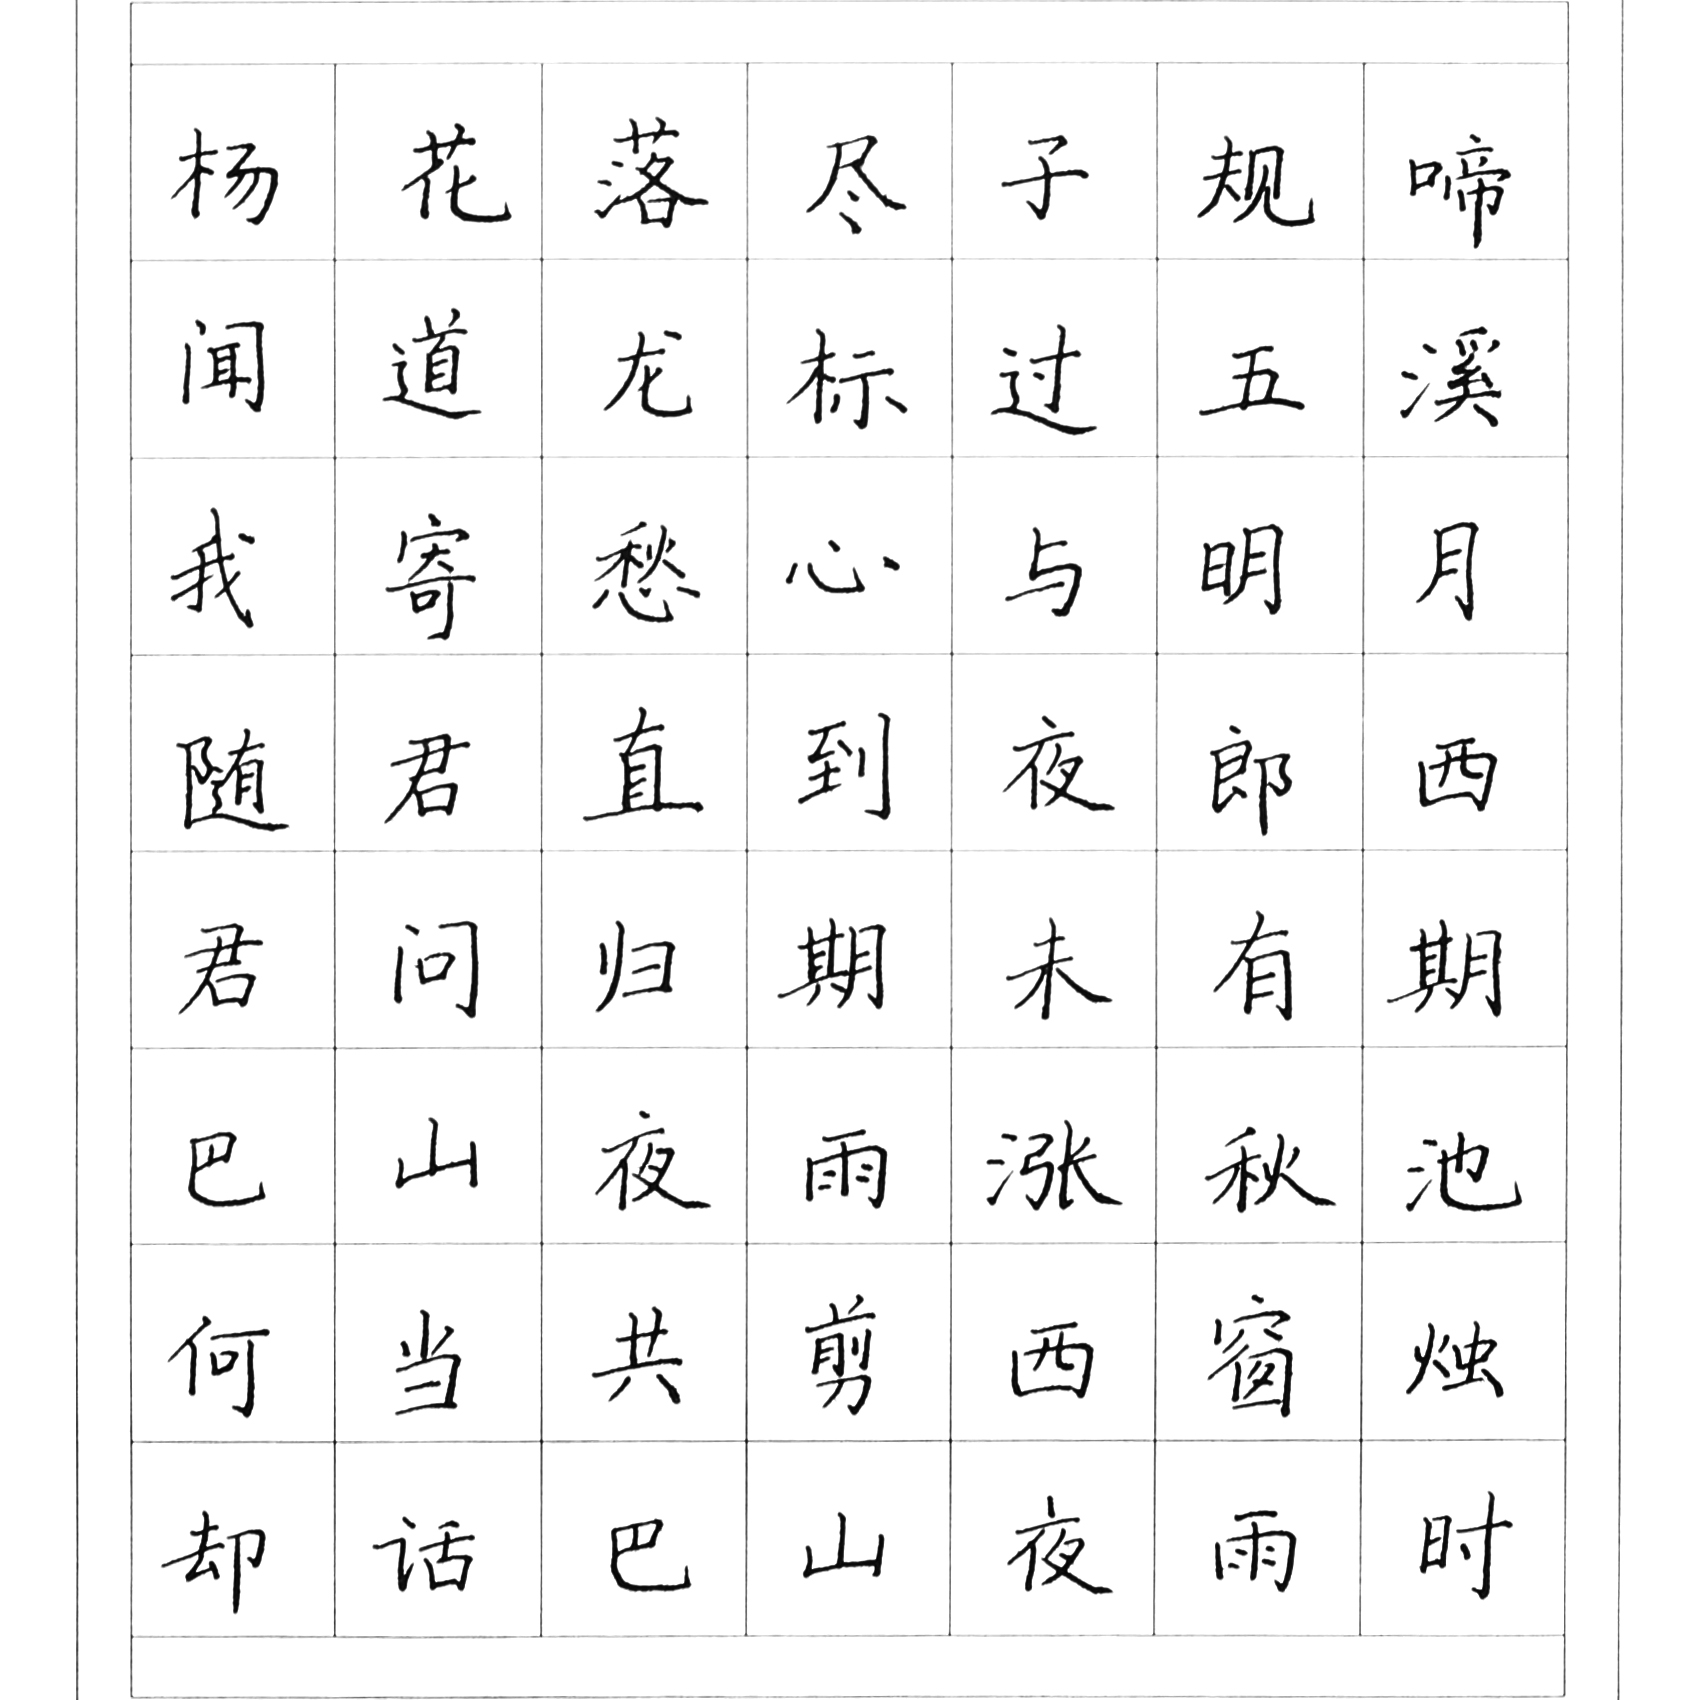 杨花落尽子规啼
闻道龙标过五溪
我寄愁心与明月
随君直到夜郎西
君问归期未有期
巴山夜雨涨秋池
何当共剪西窗烛
却话巴山夜雨时